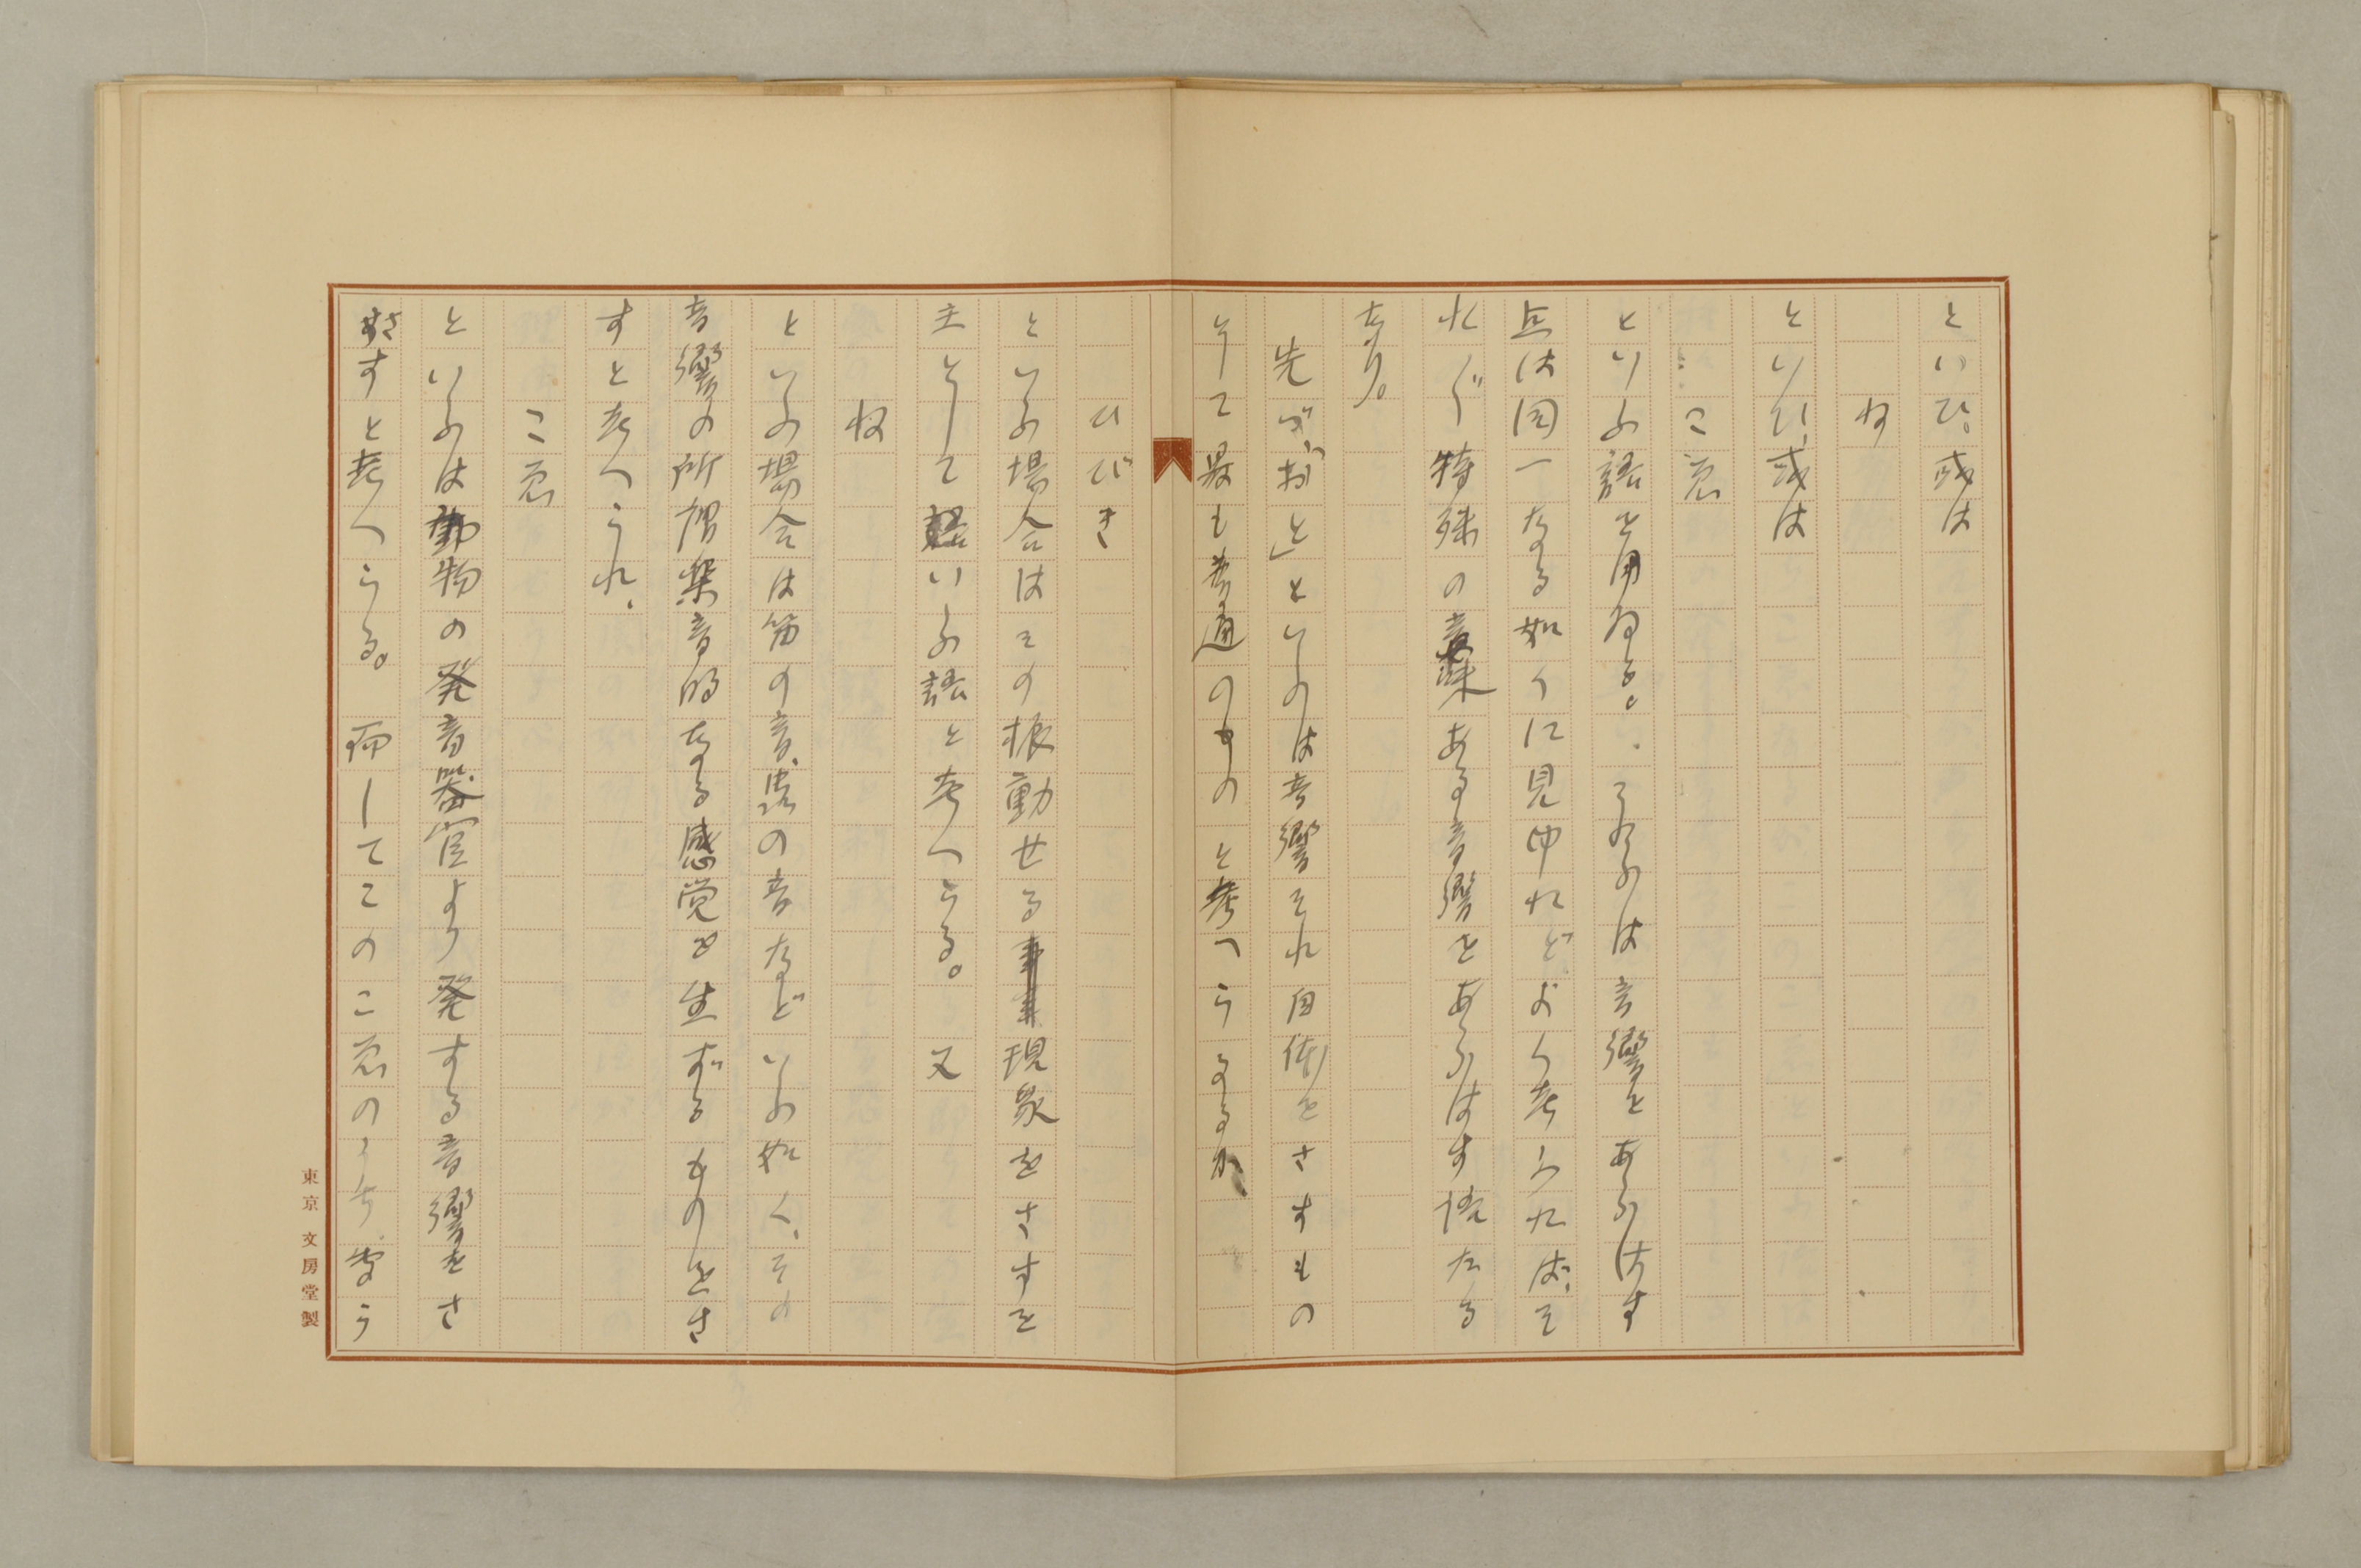 といひ。或は
ね
といひ、或は
こゑ
といふ語を用ゐる。これらは音響をあらはす
点は同一なる如くに見ゆれどよく考ふれば、そ
れ〴〵特殊の意味ある音響をあらはす語たる
なり。
先づ、「おと」といふのは音響それ自体をさすもの
そして最も普通のものと考へうるか、
ひびき
といふ場合はその振動せる現象をさすを
主そしていふ語と考へうる。又
ね
といふ場合は笛の音、の音などいふ如く、その
音響の所謂楽音的なる感覚を生ずるものをさ
すと考へうれ、
こゑ
といふは動物の発音器官より発する音響をさ
すと考へうる。而してこのこゑのうち、
東京文房堂製